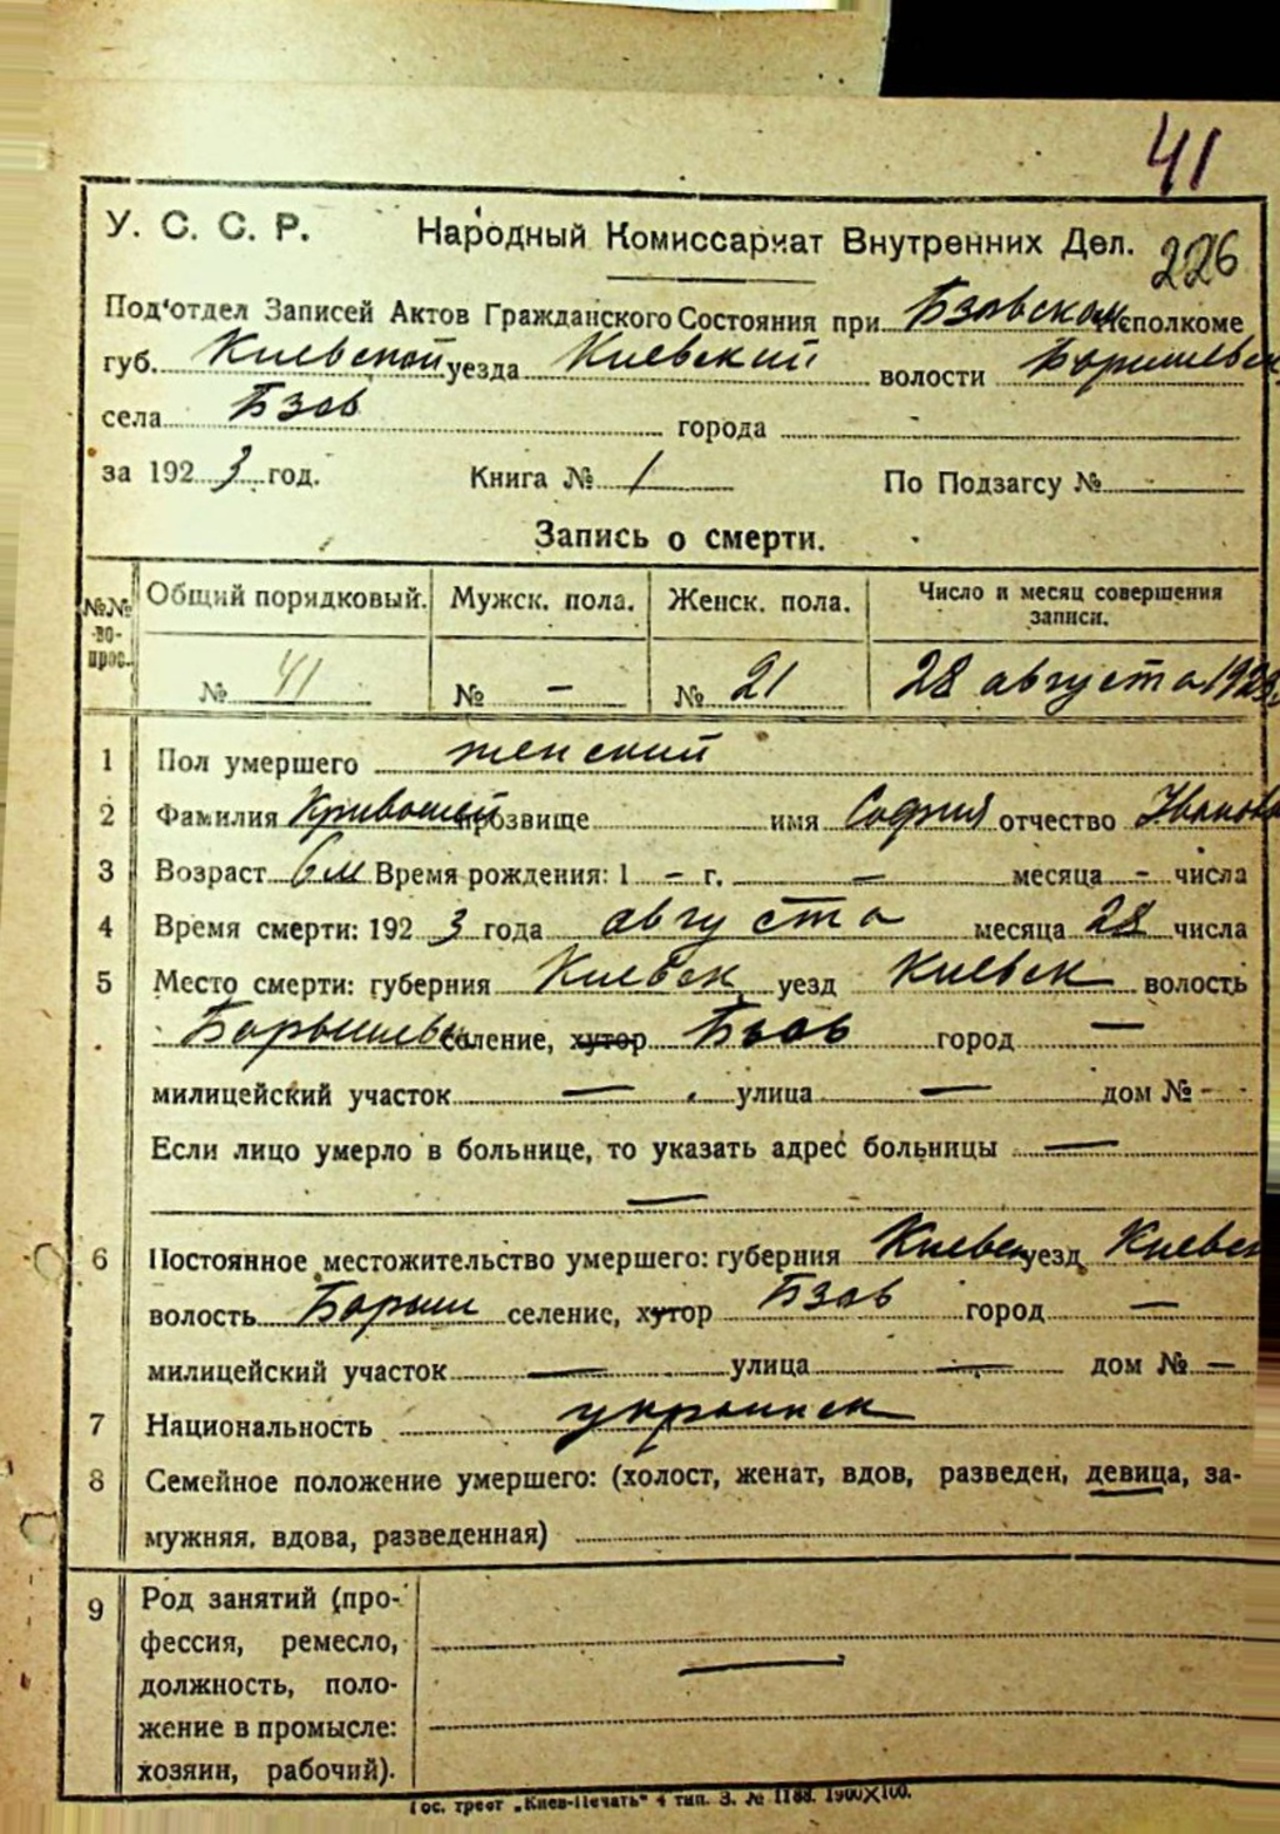 41
У. С. С. Р. Народный Комиссариат Внутренних Дел. 226
Под'отдел Записей Актов Гражданского Состояния при Бзовском Исполкоме
губ. Киевской уезда Киевский волости Боришевск
села Бзов города
за 1923 год. Книга № 1 По Подзагсу №
Запись о смерти.
№№ во-прос. Общий порядковый. Мужск. пола. Женск. пола. Число и месяц совершения записи.
№ 41 № — № 21 28 августа 1923
1 Пол умершего женский
2 Фамилия Кривошей прозвище имя София отчество Иванова
3 Возраст 6 м Время рождения: 1 — г. — месяца — числа
4 Время смерти: 1923 года августа месяца 28 числа
5 Место смерти: губерния Киевск уезд Киевск волость
Барышевск селение, хутор Бзов город —
милицейский участок — улица — дом № —
Если лицо умерло в больнице, то указать адрес больницы —
—
6 Постоянное местожительство умершего: губерния Киевск уезд Киевск
волость Барыш селение, хутор Бзов город —
милицейский участок — улица — дом № —
7 Национальность украинск
8 Семейное положение умершего: (холост, женат, вдов, разведен, девица, за-
мужняя, вдова, разведенная)
9 Род занятий (про-
фессия, ремесло,
должность, поло- —
жение в промысле:
хозяин, рабочий).
Гос. трест „Киев-Печать" 4 тип. З. № 1188. 1900X100.